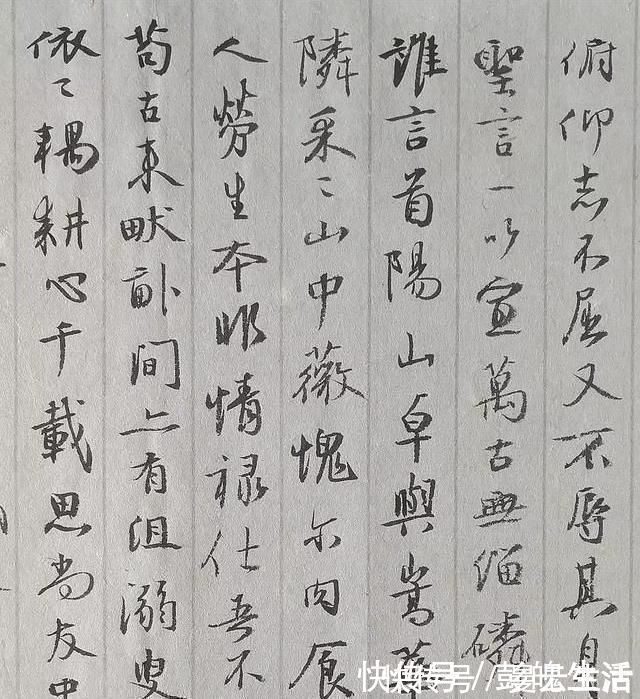 俯仰志不屈又不辱其身
聖言一以宣萬古無緇磷
誰言首陽山卓與嵩
隣采〻山中薇愧尔肉食
人勞生本非情祿仕吾不
苟古來畎畝間亦有沮溺叟
依〻耦耕心千載思尚友中
快传号//彭魄生活